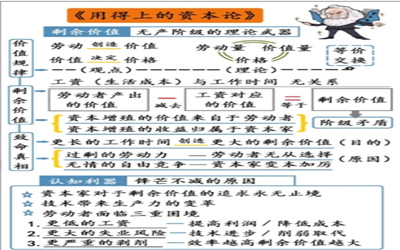 《用得上的资本论》
剩余价值 无产阶级的理论武器
价值规律
劳动 创造 价值
价值 决定 价格
劳动量 价值量
价格
等价交换
(观点) (理论)
工资(生活成本)与工作时间 无关系
剩余价值
劳动者产出的价值 减去 工资对应的价值 等于 剩余价值
资本增殖的价值来自于劳动者
资本增殖的收益归属于资本家
阶级矛盾
致命真相
更长的工作时间 创造 更大的剩余价值(目的)
过剩的劳动力——劳动者无从选择
无情的自由竞争——资本家变本加厉
(原因)
认知利器 锋芒不减的原因
☆ 资本家对于剩余价值的追求永无止境
☆ 技术带来生产力的变革
☆ 劳动者面临三重困境
1. 更低的工资——提高利润/降低成本
2. 更高的失业风险——技术进步/削弱取代
3. 更严重的剥削——效率越高剩余价值越大